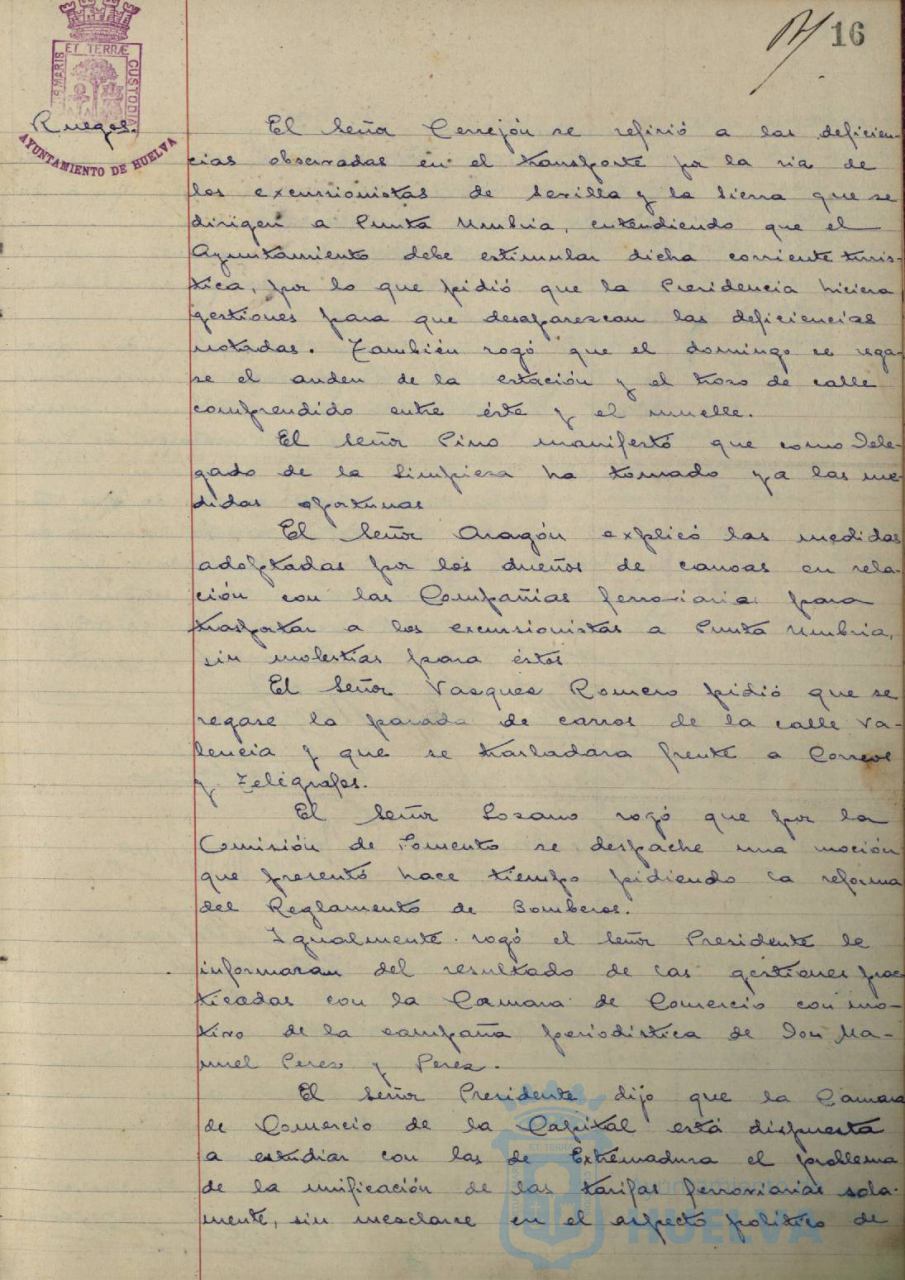 16
PORTUS MARIS ET TERRÆ CUSTODIA
AYUNTAMIENTO DE HUELVA
Ruegos.
El Señor Cerrejón se refirió a las deficien-
cias observadas en el transporte por la ria de
los excursionistas de Sevilla y la Sierra que se
dirigen a Punta Umbria, entendiendo que el
Ayuntamiento debe estimular dicha corriente turis-
tica, por lo que pidió que la Presidencia hiciera
gestiones para que desaparezcan las deficiencias
notadas. También rogó que el domingo se rega-
se el anden de la estación y el trozo de calle
comprendido entre éste y el muelle.
El Señor Pino manifestó que como Dele-
gado de la Limpieza ha tomado ya las me-
didas oportunas
El Señor Aragón explicó las medidas
adoptadas por los dueños de canoas en rela-
ción con las Compañias ferroviarias para
trasportar a los excursionistas a Punta Umbria,
sin molestias para éstos
El Señor Vasquez Romero pidió que se
regase la parada de carros de la calle Va-
lencia y que se trasladara frente a Correos
y Telégrafos.
El Señor Lozano rogó que por la
Comisión de Fomento se despache una moción
que presentó hace tiempo pidiendo la reforma
del Reglamento de Bomberos.
Igualmente rogó el Señor Presidente le
informaran del resultado de las gestiones prac-
ticadas con la Camara de Comercio con mo-
tivo de la campaña periodistica de Don Ma-
nuel Perez y Perez.
El Señor Presidente dijo que la Camara
de Comercio de la Capital está dispuesta
a estudiar con las de Extremadura el problema
de la unificación de las tarifas ferroviarias sola-
mente, sin mezclarse en el aspecto politico de
Ayuntamiento de
HUELVA